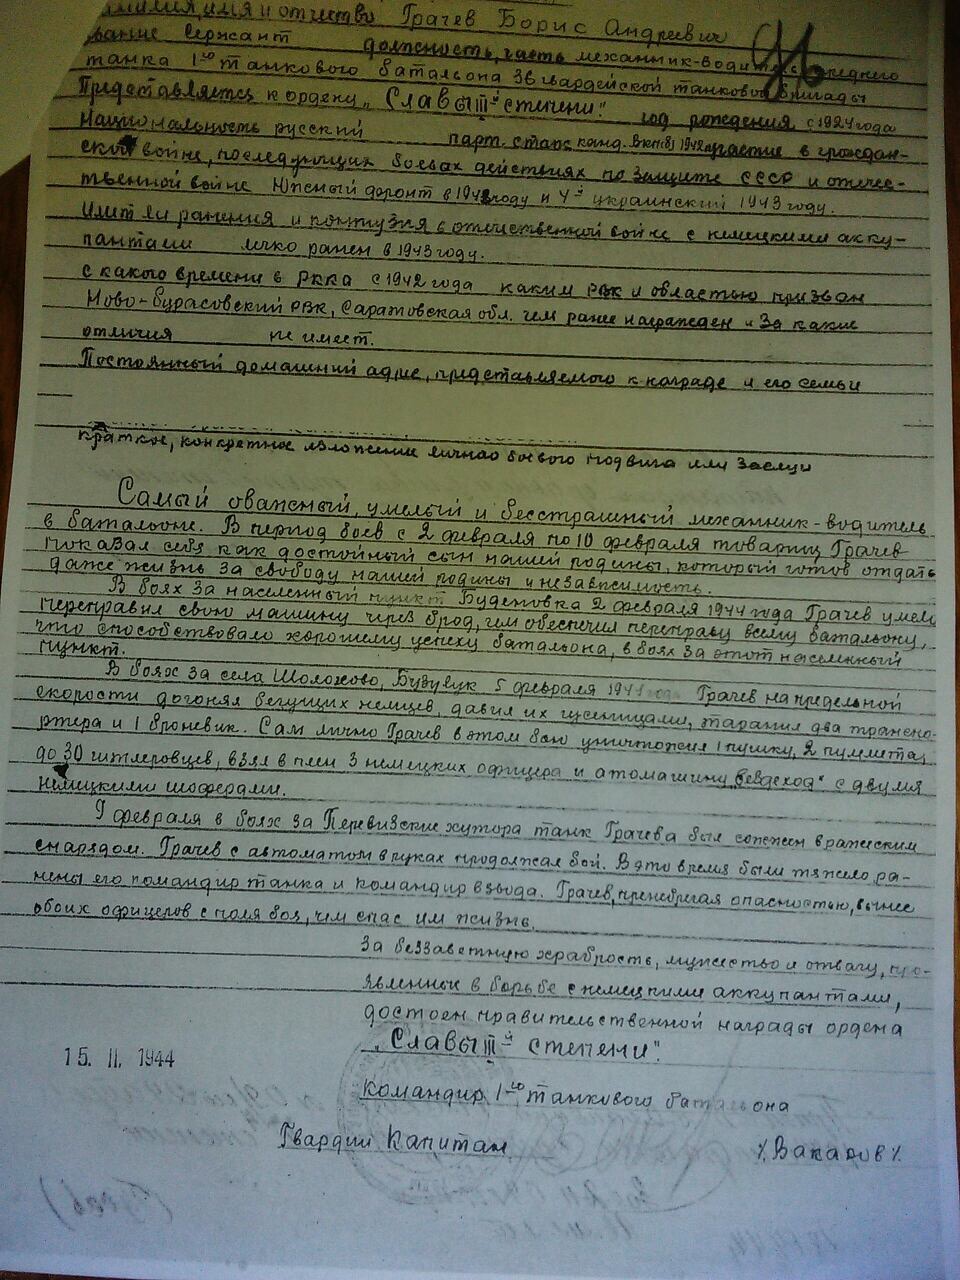 имя и отчество Грачев Борис Андреевич
звание сержант должность, часть механник-водитель среднего
танка 1го танкового батальона 36 гвардейской танковой бригады
Представляется к ордену „Славы III й степени". год рождения с 1924 года
Национальность русский парт. стаж канд. ВКП(б) 1942 участие в граждан-
ской войне, последующих боевах действиях по защите СССР и отечес-
твенной войне Южный фронт в 1942 году и 4 й украинский 1943 году.
Имет ли ранения и контузия в отечественной войне с немецкими акку-
пантами легко ранен в 1943 году.
с какого времени в РККА с 1942 года каким РВК и областью призван
Ново-Бурасовский РВК, Саратовская обл. чем ранее награжден и за какие
отличия не имеет.
Постоянный домашний адрес, представляемого к награде и его семьи
—
Краткое, конкретное изложение личнао боевого подвига или заслуги
Самый оважный, умелый и бесстрашный механник-водитель
в батальоне. В период боев с 2 февраля по 10 февраля товарищ Грачев
показал себя как достойный сын нашей родины, который готов отдать
даже жизнь за свободу нашей родины и независимость.
В боях за населенный пункт Буденовка 2 февраля 1944 года Грачев умело
переправил свою машину через брод, чем обеспечил переправу всему батальону,
что способствовало хорошему успеху батальона, в боях за этот населенный
пункт.
В боях за села Шолохово, Бузувук 5 февраля 1944 года Грачев на предельной
скорости догонял бегущих немцев, давил их гусеницами, таранил два транспо-
ртера и 1 броневик. Сам лично Грачев в этом бою уничтожил 1 пушку, 2 пулимета,
до 30 гитлеровцев, взял в плен 3 немецких офицера и атомашину „бездеход" с двумя
немецкими шоферами.
9 февраля в боях за Перевизские хутора танк Грачева был сожжен вражеским
снарядом. Грачев с автоматом в руках продолжал бой. В это время были тяжело ра-
нены его командир танка и командир взвода. Грачев, пренебрегая опасностью, вынес
обоих офицеров с поля боя, чем спас им жизнь.
За беззаветную храбрость, мужество и отвагу, про-
явленные в борьбе с немецкими аккупантами,
достоен правительственной награды ордена
„Славы III й степени".
15. II. 1944
Командир 1го танкового батальона
Гвардии Капитан /Вакаров/